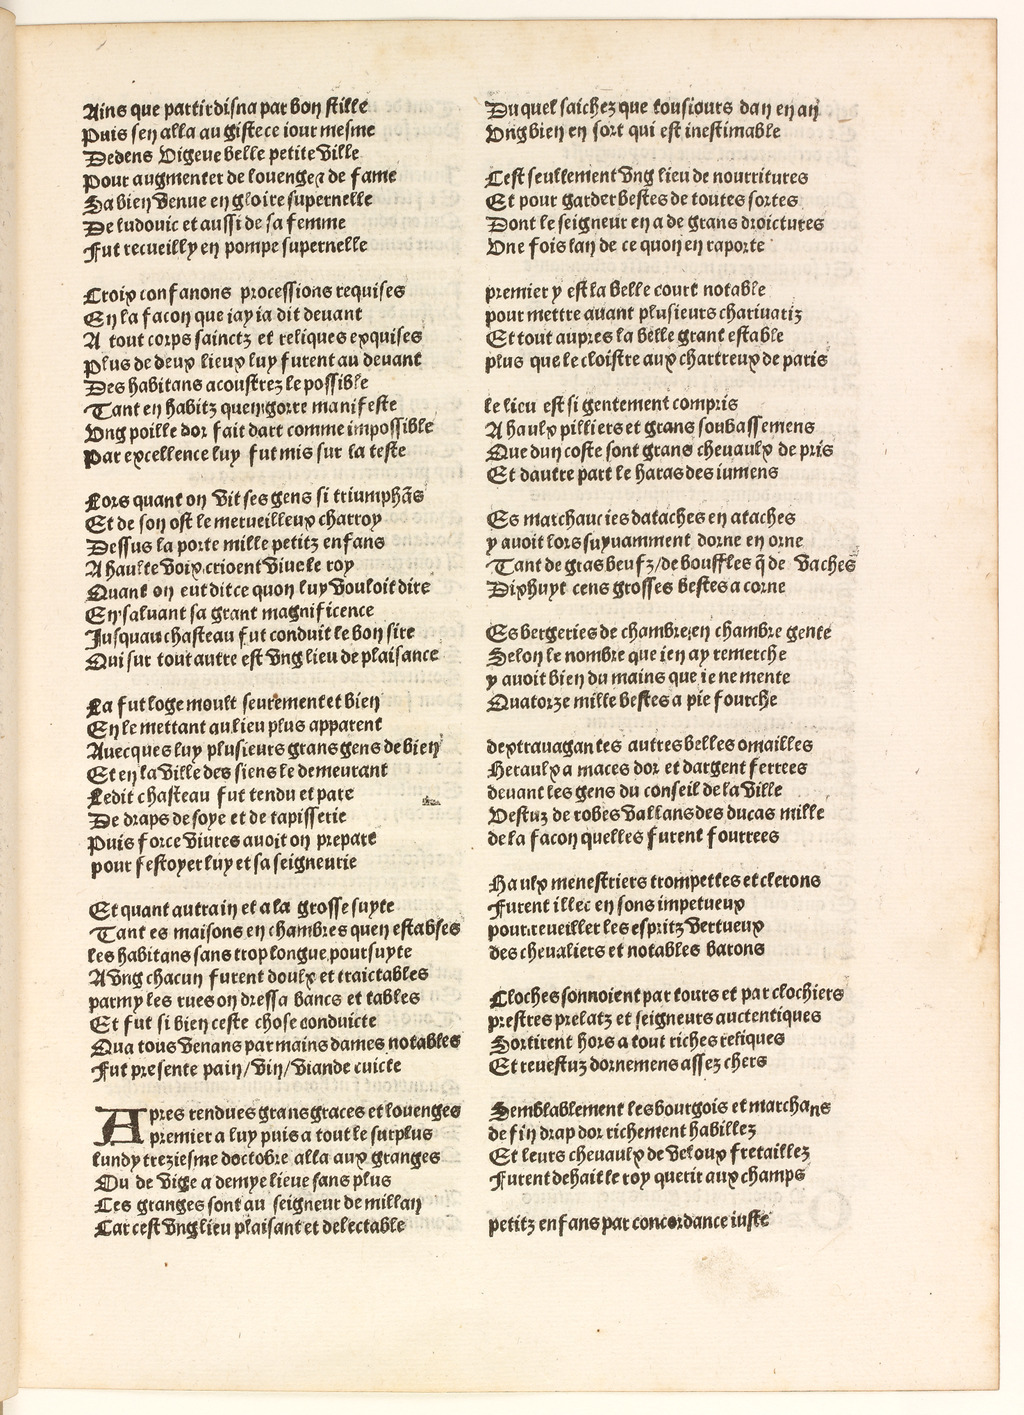 Ains que partir disna par bon stille
Puis sen alla au giste ce iour mesme
Dedens Vigeue belle petite ville
Pour augmenter de louenge & de fame
Sa bien venue en gloire supernelle
De ludouic et aussi de sa femme
Fut recueilly en pompe supernelle

Croix confanons processions requises
En la facon que iay ia dit deuant
A tout corps sainctz et reliques exquises
Plus de deux lieux luy furent au deuant
Des habitans acoustrez le possible
Tant en habitz quen gorre manifeste
Vng poille dor fait dart comme impossible
Par excellence luy fut mis sur la teste

Lors quant on vit ses gens si triumphãs
Et de son ost le merueilleux charroy
Dessus la porte mille petitz enfans
A haulte voix crioent viue le roy
Quant on eut dit ce quon luy vouloit dire
En saluant sa grant magnificence
Jusquau chasteau fut conduit le bon sire
Qui sur tout autre est vng lieu de plaisance

La fut loge moult seurement et bien
En le mettant au lieu plus apparent
Auecques luy plusieurs grans gens de bien
Et en la ville des siens le demeurant
Ledit chasteau fut tendu et pare
De draps de soye et de tapisserie
Puis force viures auoit on prepare
pour festoyer luy et sa seigneurie

Et quant autrain et a la grosse suyte
Tant es maisons en chambres quen estables
les habitans sans trop longue poursuyte
A vng chacun furent doulx et traictables
parmy les rues on dressa bancs et tables
Et fut si bien ceste chose conduicte
Qua tous venans par mains dames notables
Fut presente pain/vin/viande cuicte

Apres rendues grans graces et louenges
premier a luy puis a tout le surplus
lundy treziesme doctobre alla aux granges
Ou de vige a demye lieue sans plus
Ces granges sont au seigneur de millan
Car cest vng lieu plaisant et delectable
Du quel saichez que tousiours dan en an
Vng bien en sort qui est inestimable

Cest seullement vng lieu de nourritures
Et pour garder bestes de toutes sortes
Dont le seigneur en a de grans droictures
Vne fois lan de ce quon en raporte

premier y est la belle court notable
pour mettre auant plusieurs chariuatiz
Et tout aupres la belle grant estable
plus que le cloistre aux chartreux de paris

le lieu est si gentement compris
A haulx pilliers et grans soubassemens
Que dun coste sont grans cheuaulx de pris
Et dautre part le haras des iumens

Es marchaucies dataches en ataches
y auoit lors suyuamment dorne en orne
Tant de gras beufz/de bouffles q̃ de vaches
Dixhuyt cens grosses bestes a corne

Es bergeries de chambre en chambre gente
Selon le nombre que ien ay remerche
y auoit bien du mains que ie ne mente
Quatorze mille bestes a pie fourche

dextrauagantes autres belles omailles
Heraulx a maces dor et dargent ferrees
deuant les gens du conseil de la ville
Vestuz de robes vallans des ducas mille
de la facon quelles furent fourrees

Haulx menestriers trompettes et clerons
Furent illec en sons impetueux
pour reueiller les espritz vertueux
des cheualiers et notables barons

Cloches sonnoient par tours et par clochiers
prestres prelatz et seigneurs auctentiques
Sortirent hors a tout riches reliques
Et reuestuz dornemens assez chers

Semblablement les bourgois et marchans
de fin drap dor richement habillez
Et leurs cheuaulx de veloux fretaillez
Furent dehait le roy querir aux champs

petitz enfans par concordance iuste